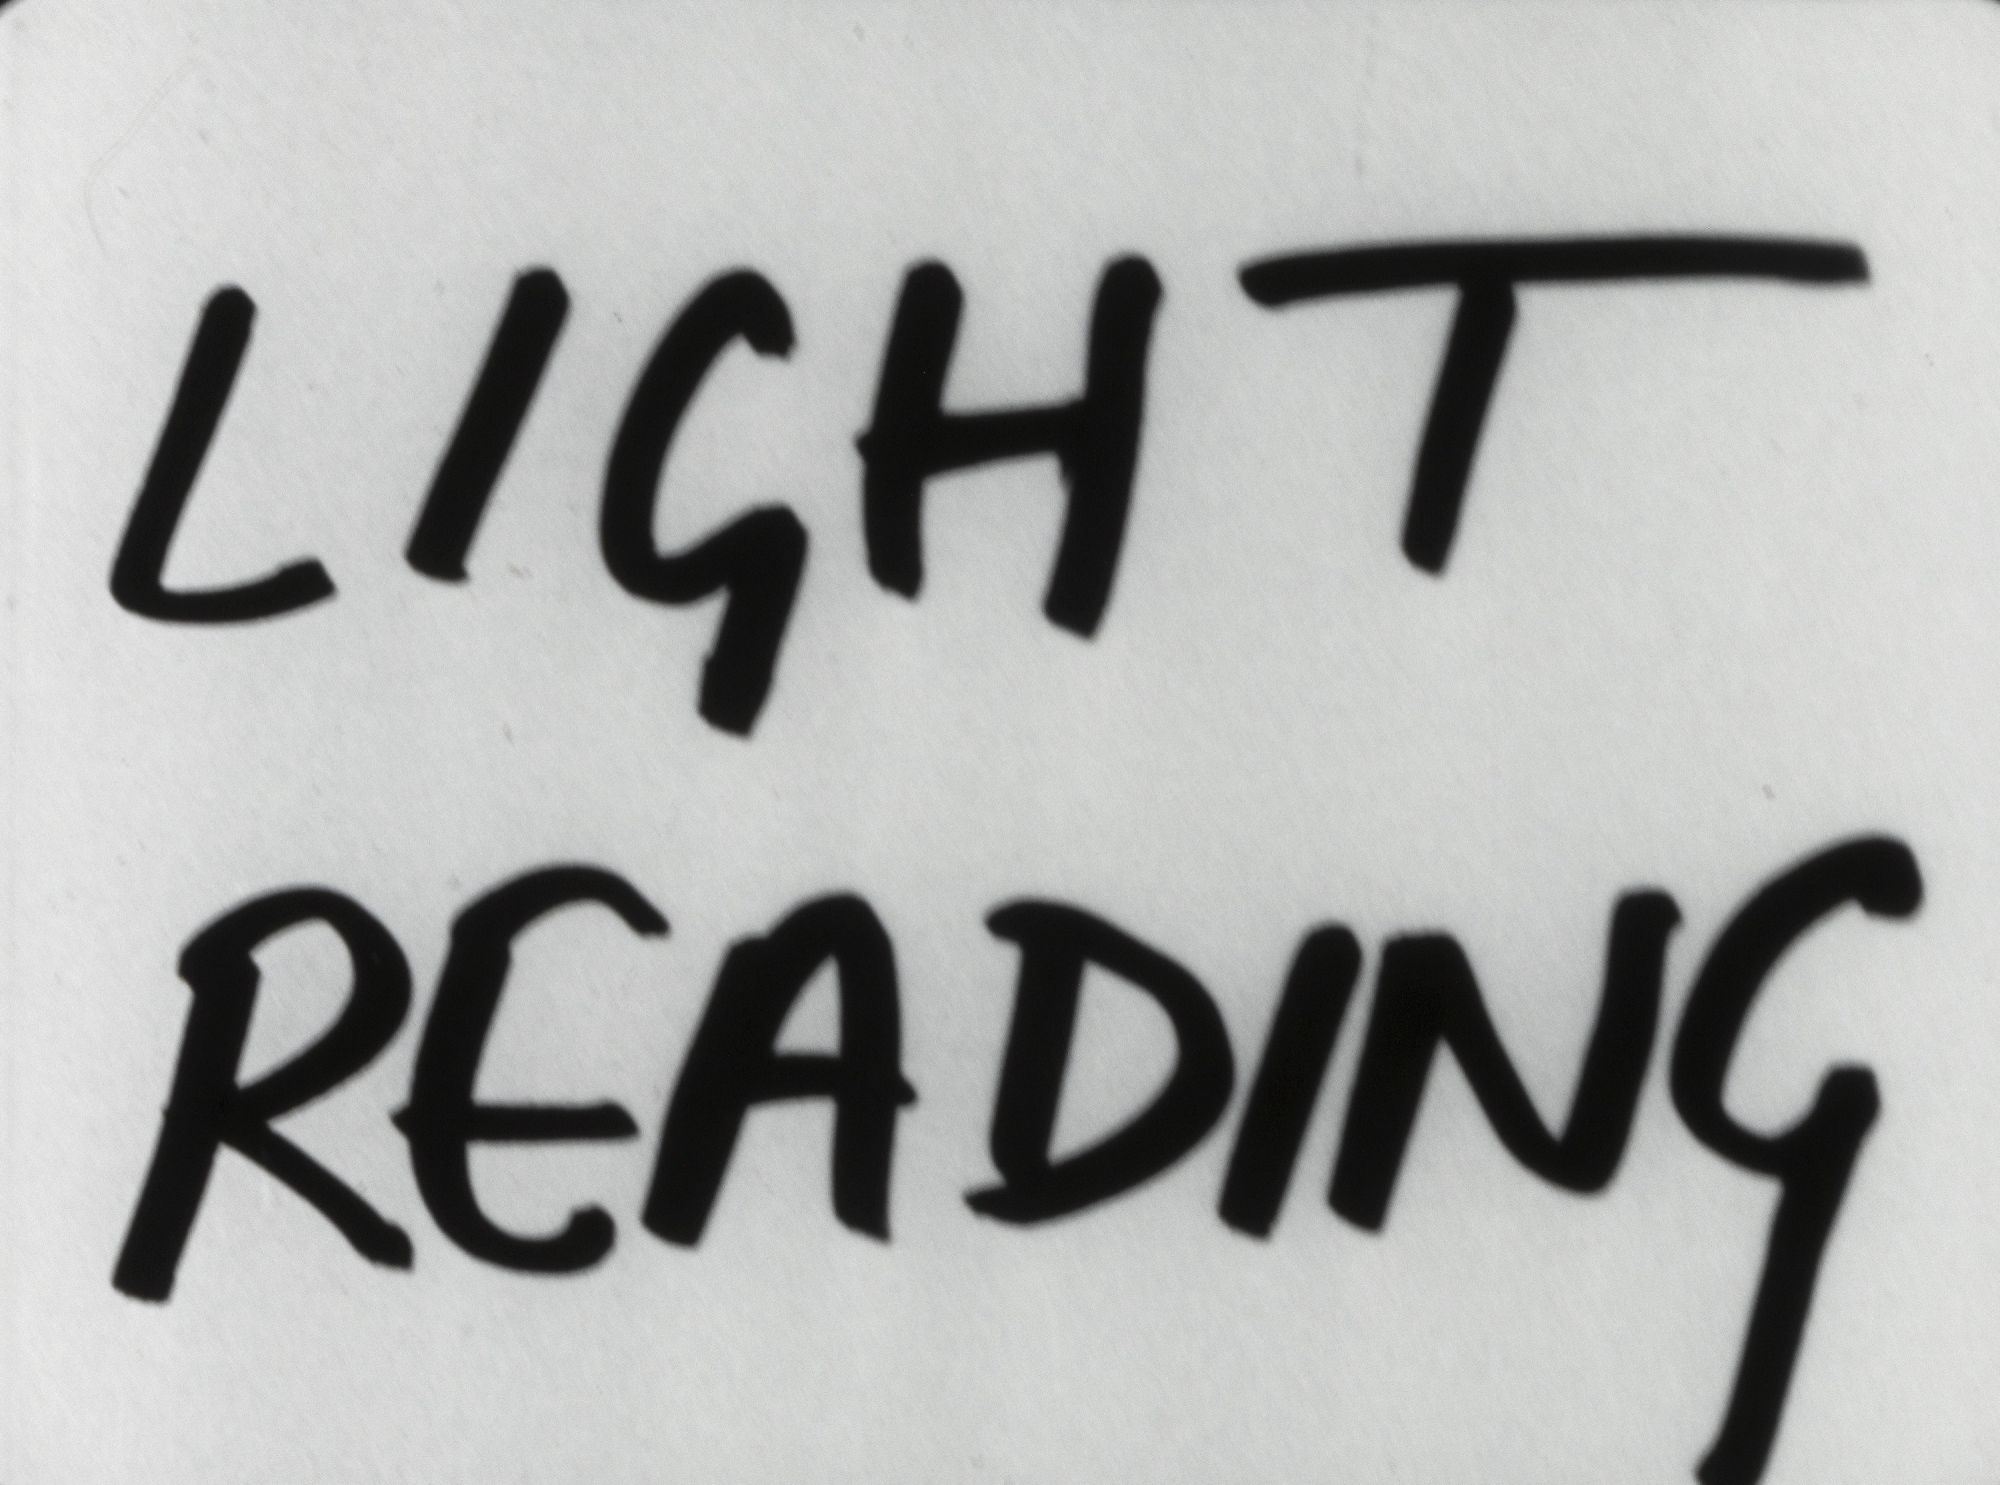 LIGHT
READING